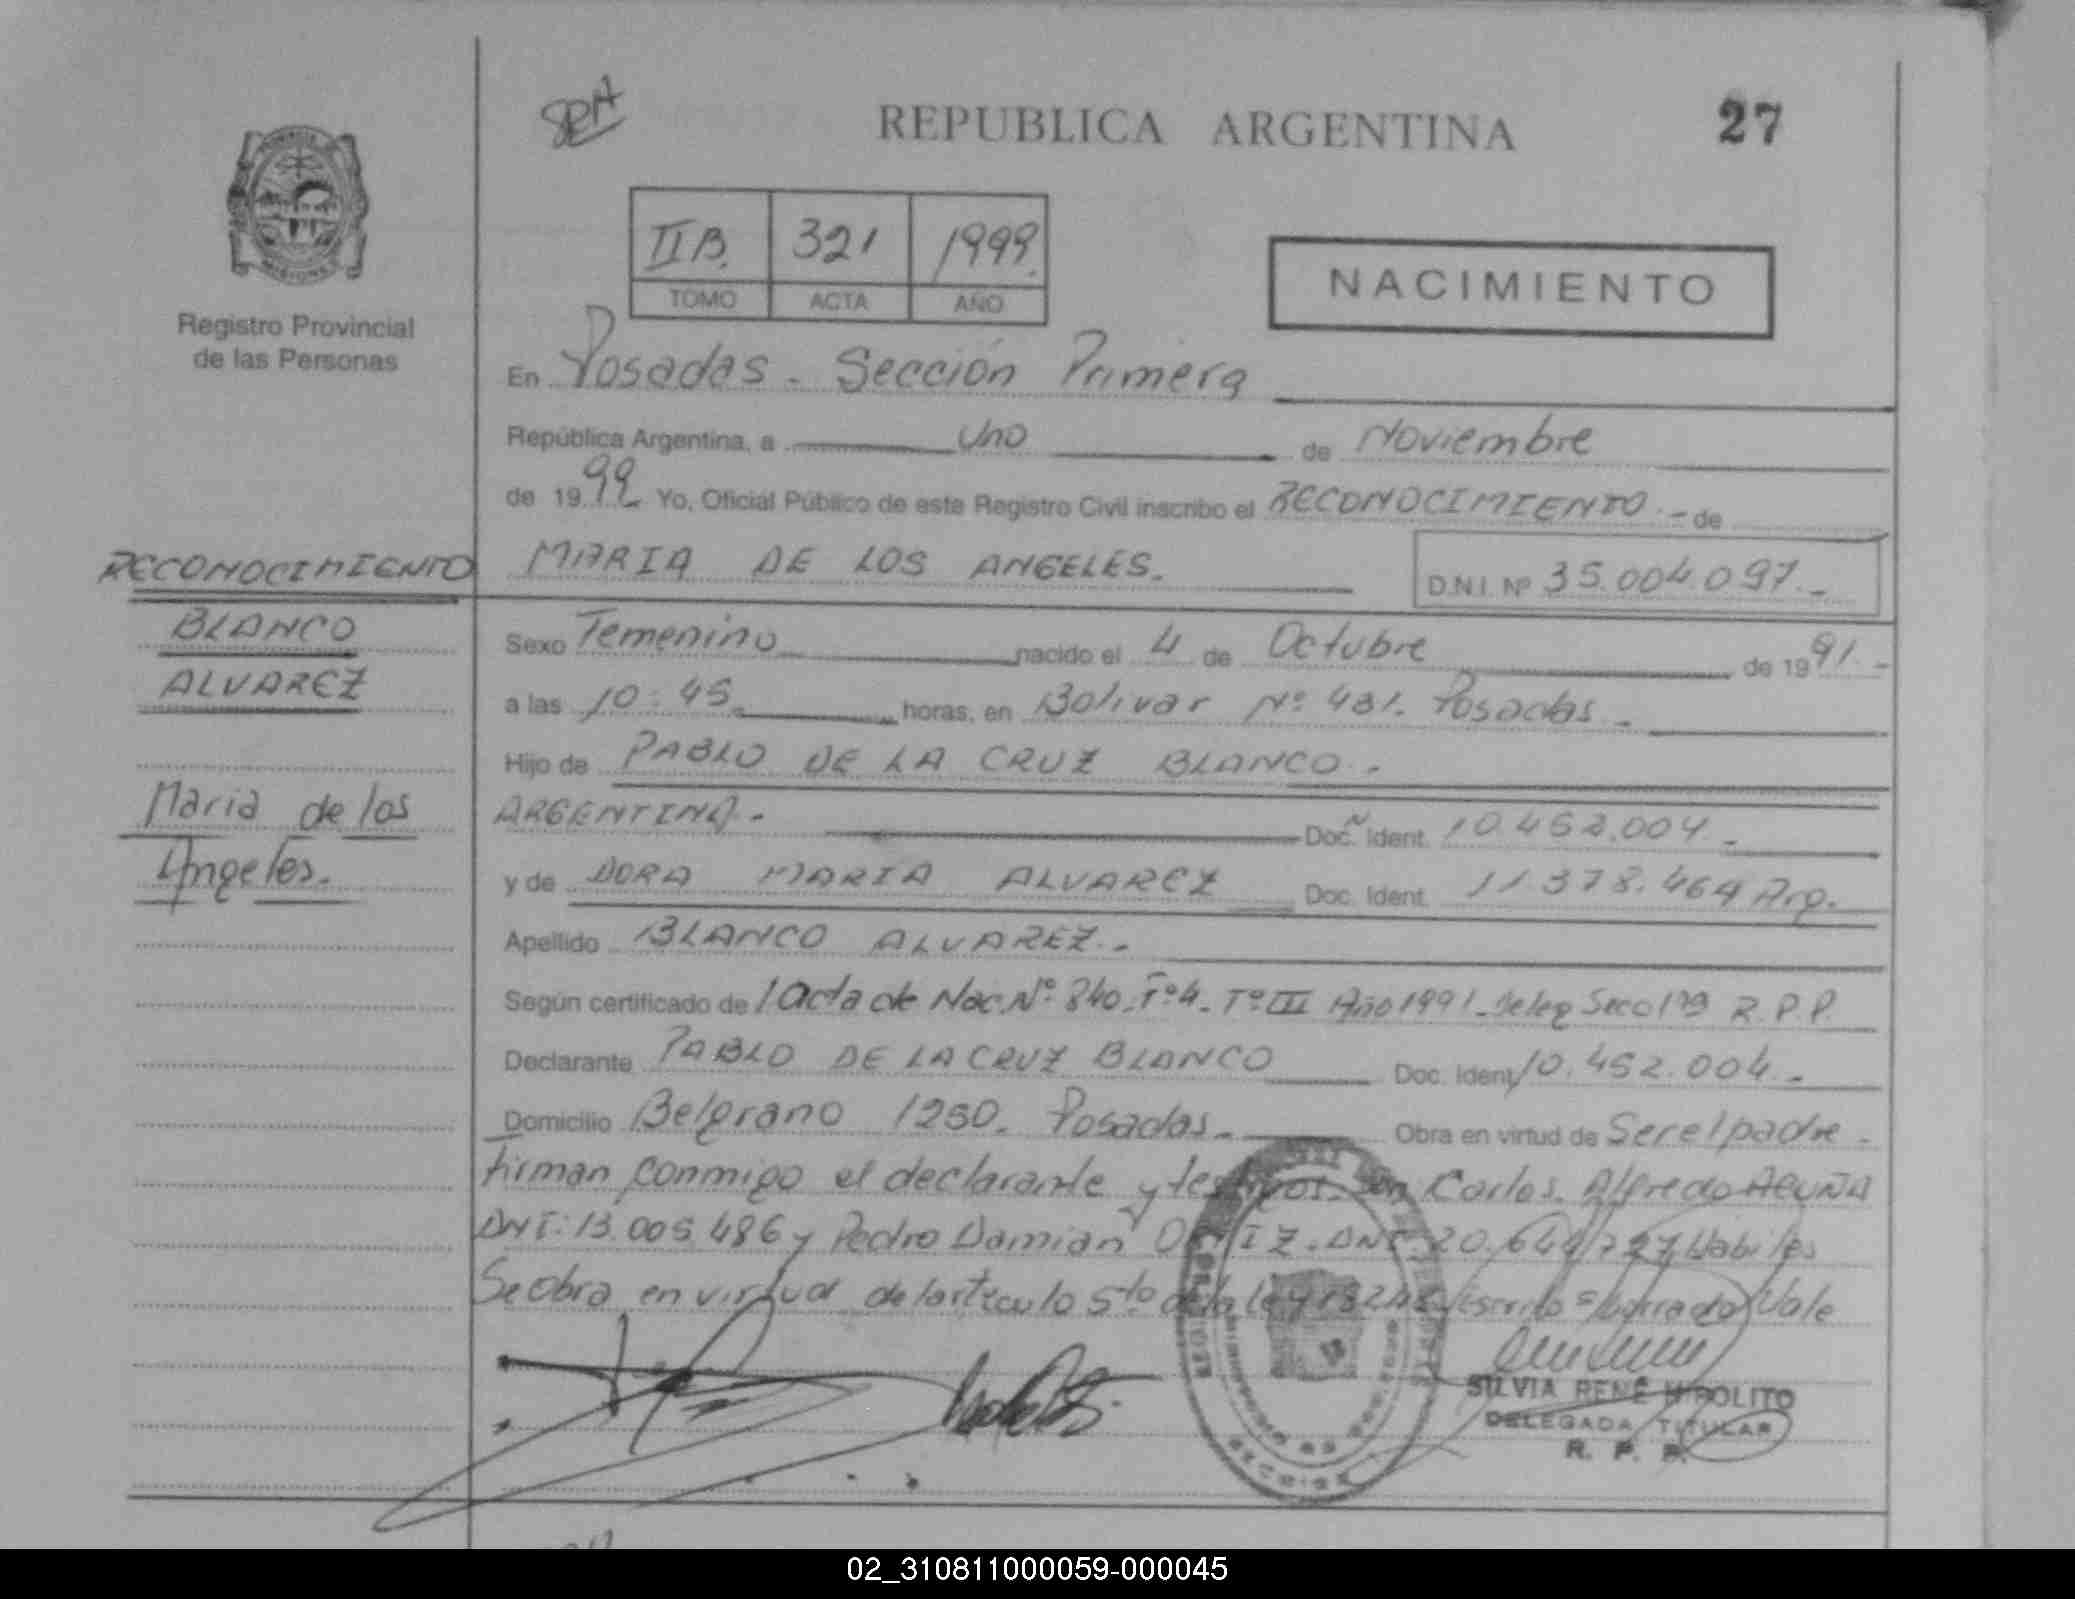 SRA
REPUBLICA ARGENTINA
27
IIB. 321 1999.
TOMO ACTA AÑO
NACIMIENTO
Registro Provincial
de las Personas
En Posadas - Sección Primera
República Argentina, a Uno de Noviembre
de 1999 Yo, Oficial Público de este Registro Civil inscribo el RECONOCIMIENTO.- de
MARIA DE LOS ANGELES. D.N.I. Nº 35.004.097.-
RECONOCIMIENTO
BLANCO
ALVAREZ
Maria de los
Angeles.
Sexo Femenino nacido el 4 de Octubre de 1991.-
a las 10:45 horas, en Bolivar Nº 481. Posadas -
Hijo de PABLO DE LA CRUZ BLANCO.-
ARGENTINA.- Doc. Ident. 10.452.004.-
y de DORA MARIA ALVAREZ Doc. Ident. 11.378.464 Arg.
Apellido BLANCO ALVAREZ.-
Según certificado de Acta de Nac. Nº 840. Tº III Año 1991 - Deleg Secc 1ra R.P.P.
Declarante PABLO DE LA CRUZ BLANCO Doc. Ident 10.452.004.-
Domicilio Belgrano 1250. Posadas.- Obra en virtud de Ser el padre -
Firman conmigo el declarante y testigos Carlos Alfredo ACUÑA
DNI: 13.005.486 y Pedro Damian ORTIZ. DNI 20.644.727 Habiles
Se obra en virtud del articulo 5to de la ley 18248 Escrito s/borrado Vale
SILVIA RENÉ HIPOLITO
DELEGADA TITULAR
R. P. P.
02_310811000059-000045